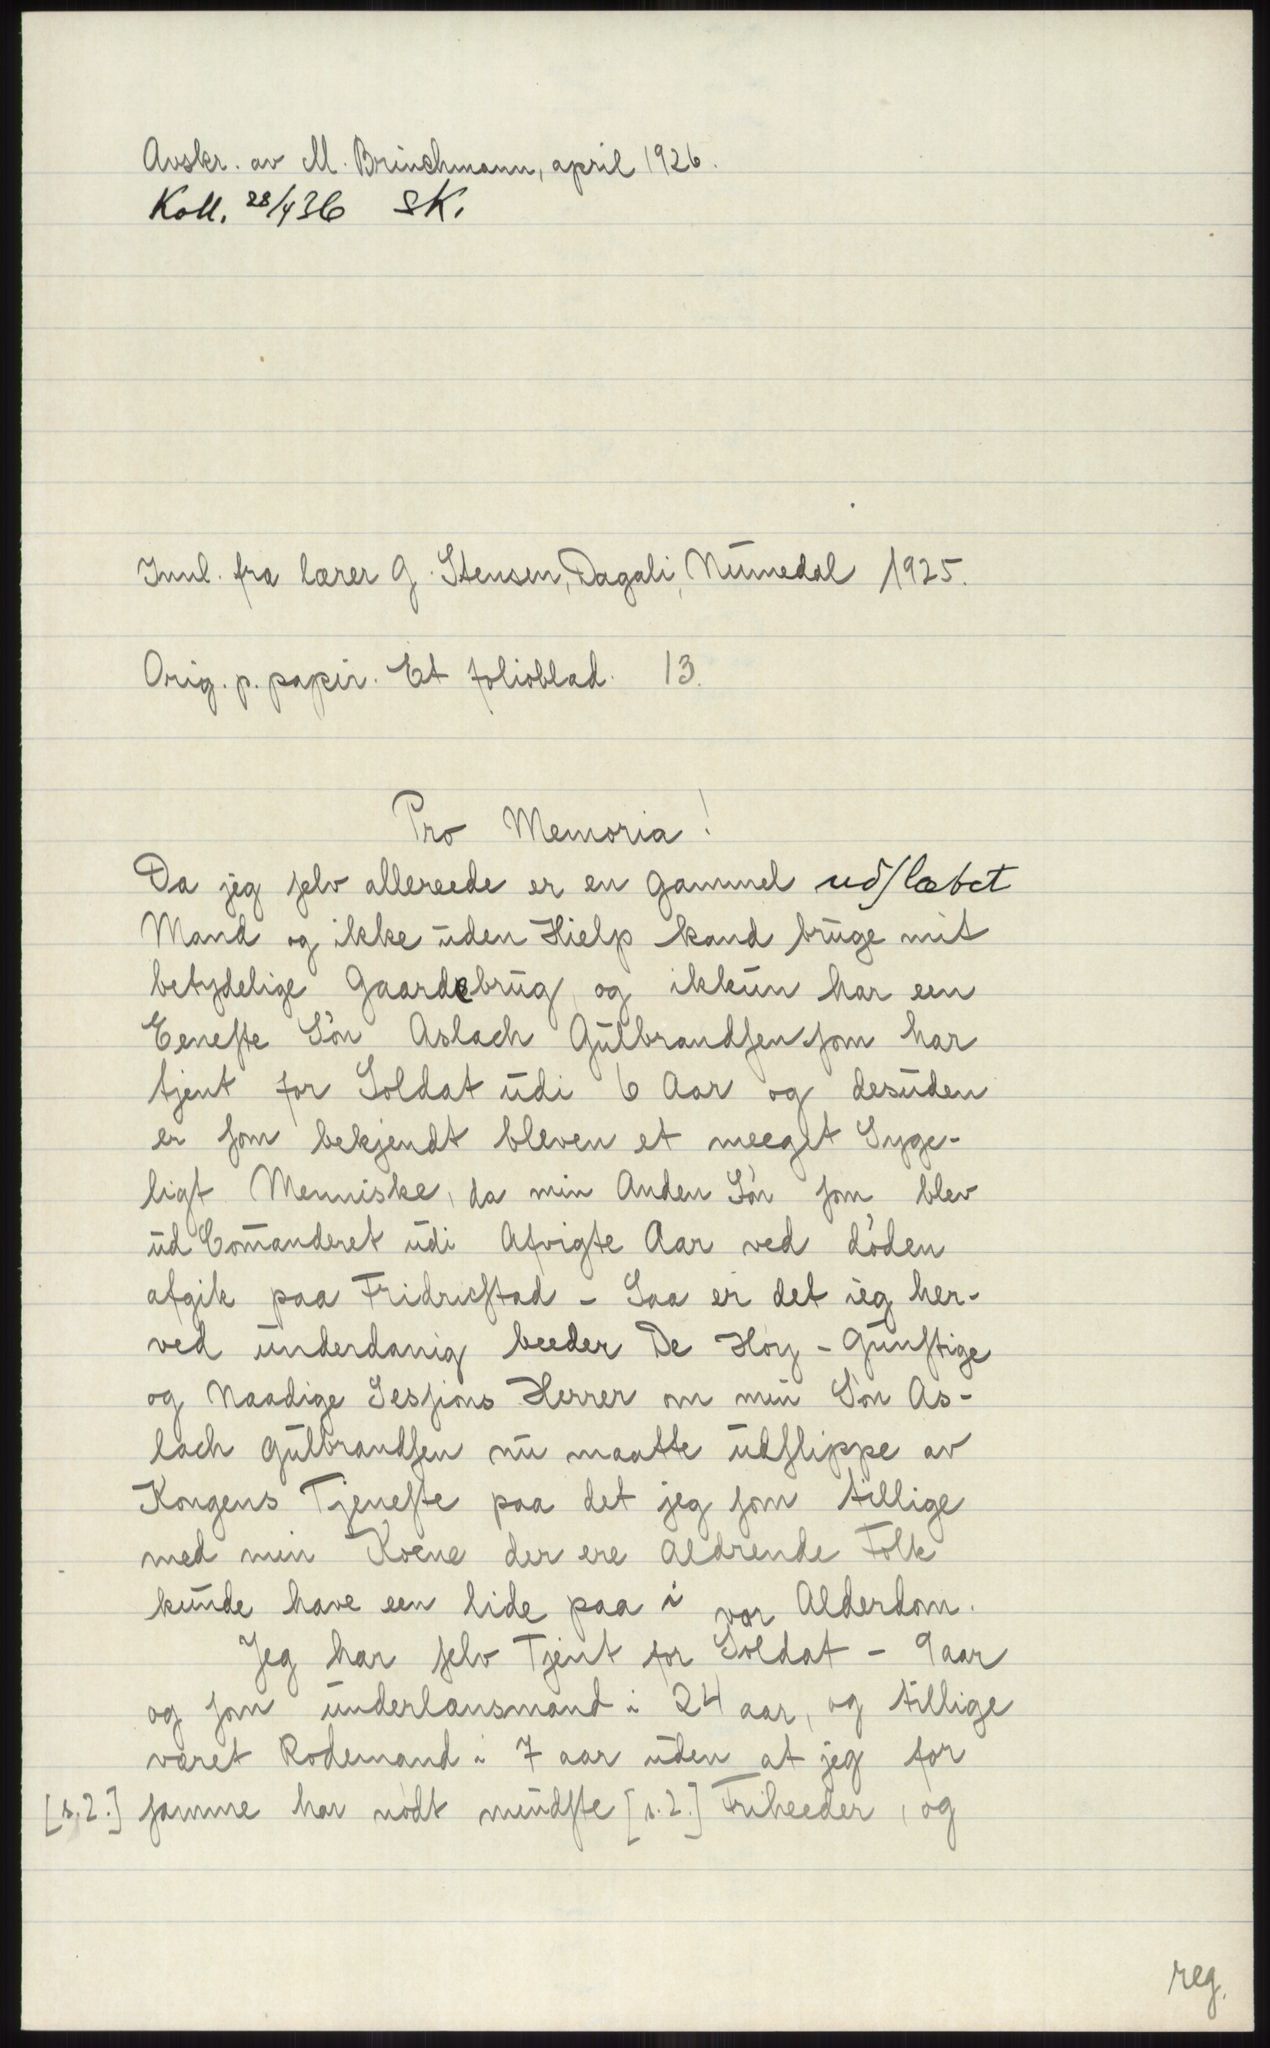 Avskr. av M. Brinchmann, april 1926.
Koll. 28/4 36 SK.
Innl. fra lærer G. Stensen, Dagali, Numedal 1925.
Orig. p. papir. Et folioblad. 13.
Pro Memoria!
Da jeg selv allereede er en gammel udslæbet
Mand og ikke uden Hielp kand bruge mit
betydelige Gaardebrug, og ikkun har een
Eeneste Søn Aslach Gulbrandsen som har
tjent for Soldat udi 6 Aar og desuden
er som bekjendt bleven et meeget Syge-
ligt Menniske, da min Anden Søn som blev
ud Comanderet udi Afvigte Aar ved døden
afgik paa Fridricstad - Saa er det ieg her-
ved underdanig beeder De Høy-Gunstige
og Naadige Sessions Herrer om min Søn As-
lach Gulbrandsen nu maatte udslippe av
Kongens Tjeneste paa det jeg som tillige
med min Kone der ere Aldrende Folk
kunde have een lide paa i vor Alderdom.
Jeg har selv Tjent for Soldat - 9 aar
og som underlænsmand i 24 aar, og tillige
været Rodemand i 7 aar uden at jeg for
[s. 2.] samme har nødt mindste [s. 2.] Friheeder, og
reg.